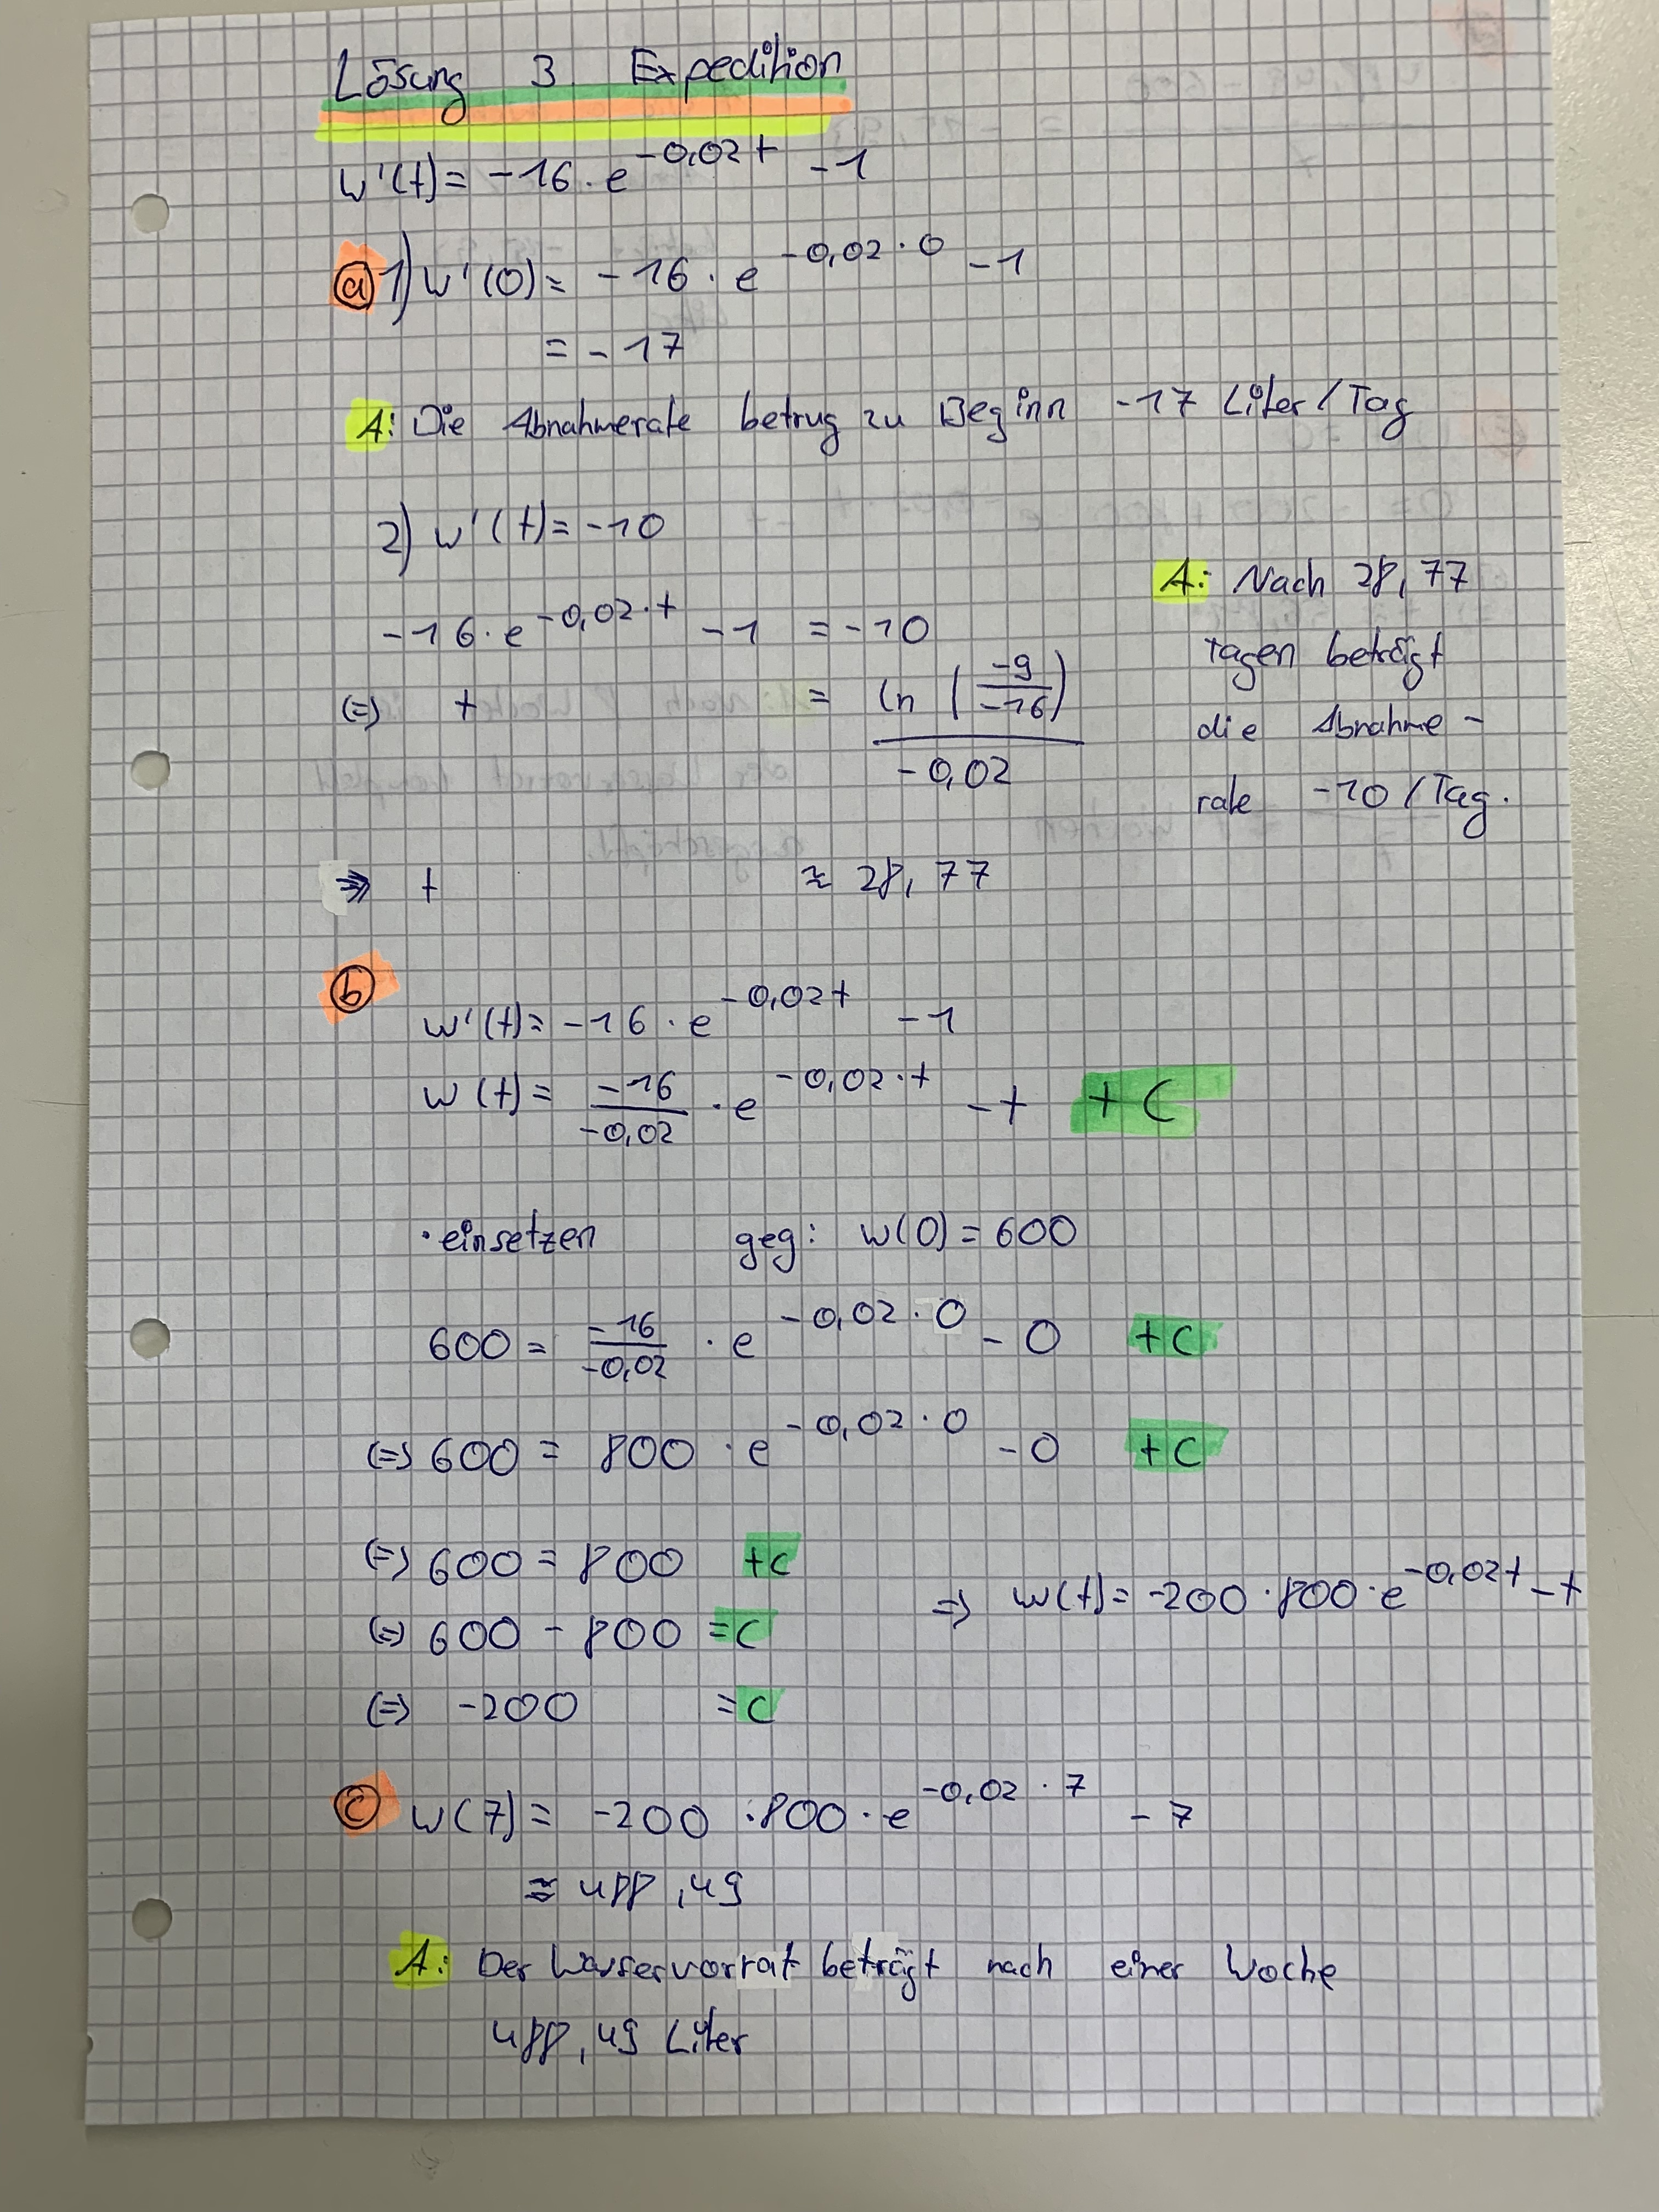 Lösung 3 Expedition
w'(t) = -16 · e^-0,02t - 1
a) 1) w'(0) = -16 · e^-0,02·0 - 1
= -17
A: Die Abnahmerate betrug zu Beginn -17 Liter/Tag
2) w'(t) = -10
-16 · e^-0,02·t - 1 = -10
(=) t = ln(-9/-16) / -0,02
=> t ≈ 28,77
A: Nach 28,77
tagen beträgt
die Abnahme-
rate -10/Tag.
b) w'(t) = -16 · e^-0,02t - 1
w(t) = -16/-0,02 · e^-0,02·t - t + C
· einsetzen geg: w(0) = 600
600 = -16/-0,02 · e^-0,02·0 - 0 + C
(=) 600 = 800 · e^-0,02·0 - 0 + C
(=) 600 = 800 + C
(=) 600 - 800 = C
(=) -200 = C
=> w(t) = -200 · 800 · e^-0,02t - t
c) w(7) = -200 · 800 · e^-0,02·7 - 7
≈ 488,49
A: Der Wasservorrat beträgt nach einer Woche
488,49 Liter